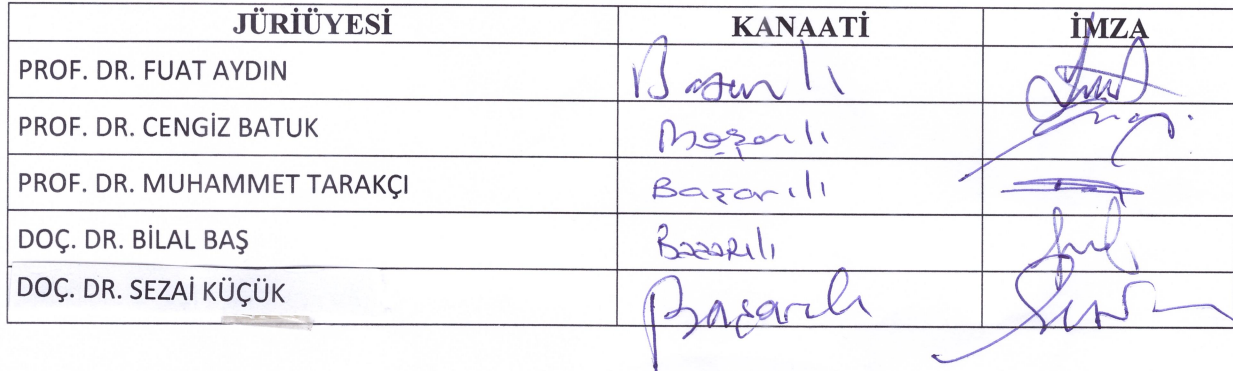 JÜRİÜYESİ KANAATİ İMZA
PROF. DR. FUAT AYDIN Başarılı
PROF. DR. CENGİZ BATUK Başarılı
PROF. DR. MUHAMMET TARAKÇI Başarılı
DOÇ. DR. BİLAL BAŞ Başarılı
DOÇ. DR. SEZAİ KÜÇÜK Başarılı